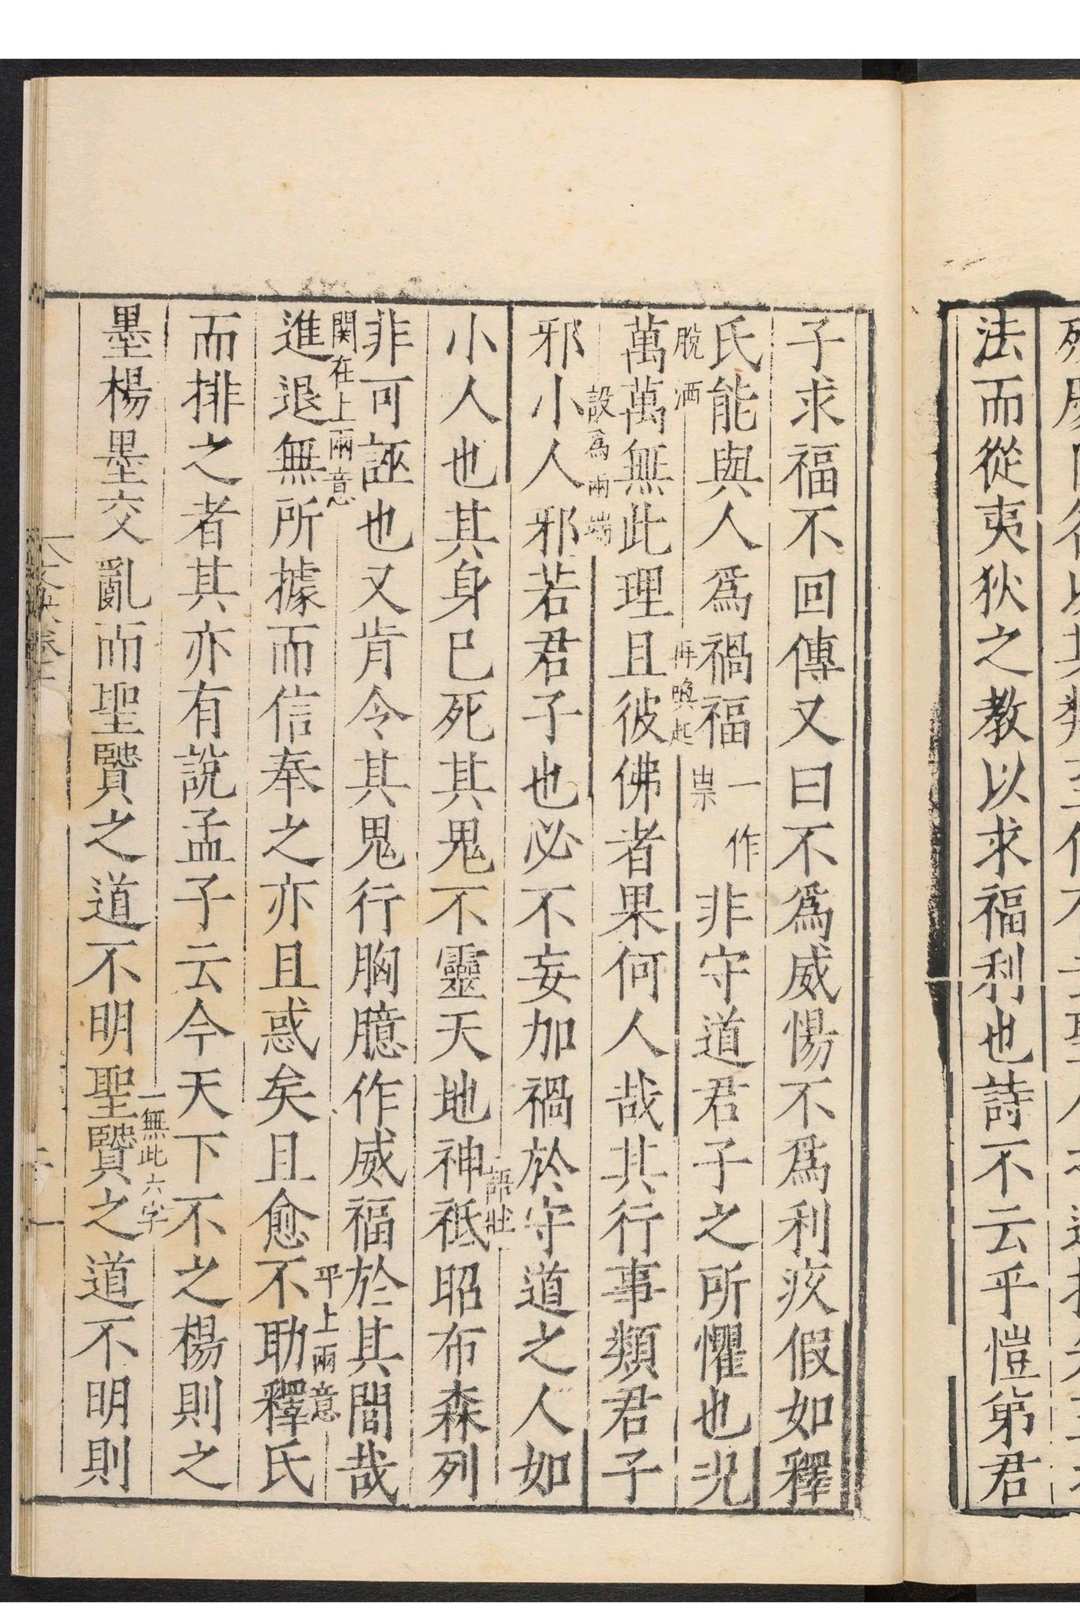 法而從夷狄之教以求福利也詩不云乎愷第君
子求福不回傳又曰不爲威惕不爲利疚假如釋
氏能與人爲禍福一作祟非守道君子之所懼也况
脫洒
再喚起
萬萬無此理且彼佛者果何人哉其行事類君子
設爲兩端
邪小人邪若君子也必不妄加禍於守道之人如
小人也其身巳死其鬼不靈天地神祗昭布森列
語壯
非可誣也又肯令其鬼行胸臆作威福於其間哉
進退無所據而信奉之亦且惑矣且愈不助釋氏
関在上兩意
平上兩意
而排之者其亦有說孟子云今天下不之楊則之
墨楊墨交亂而聖賢之道不明聖賢之道不明則
一無此六字